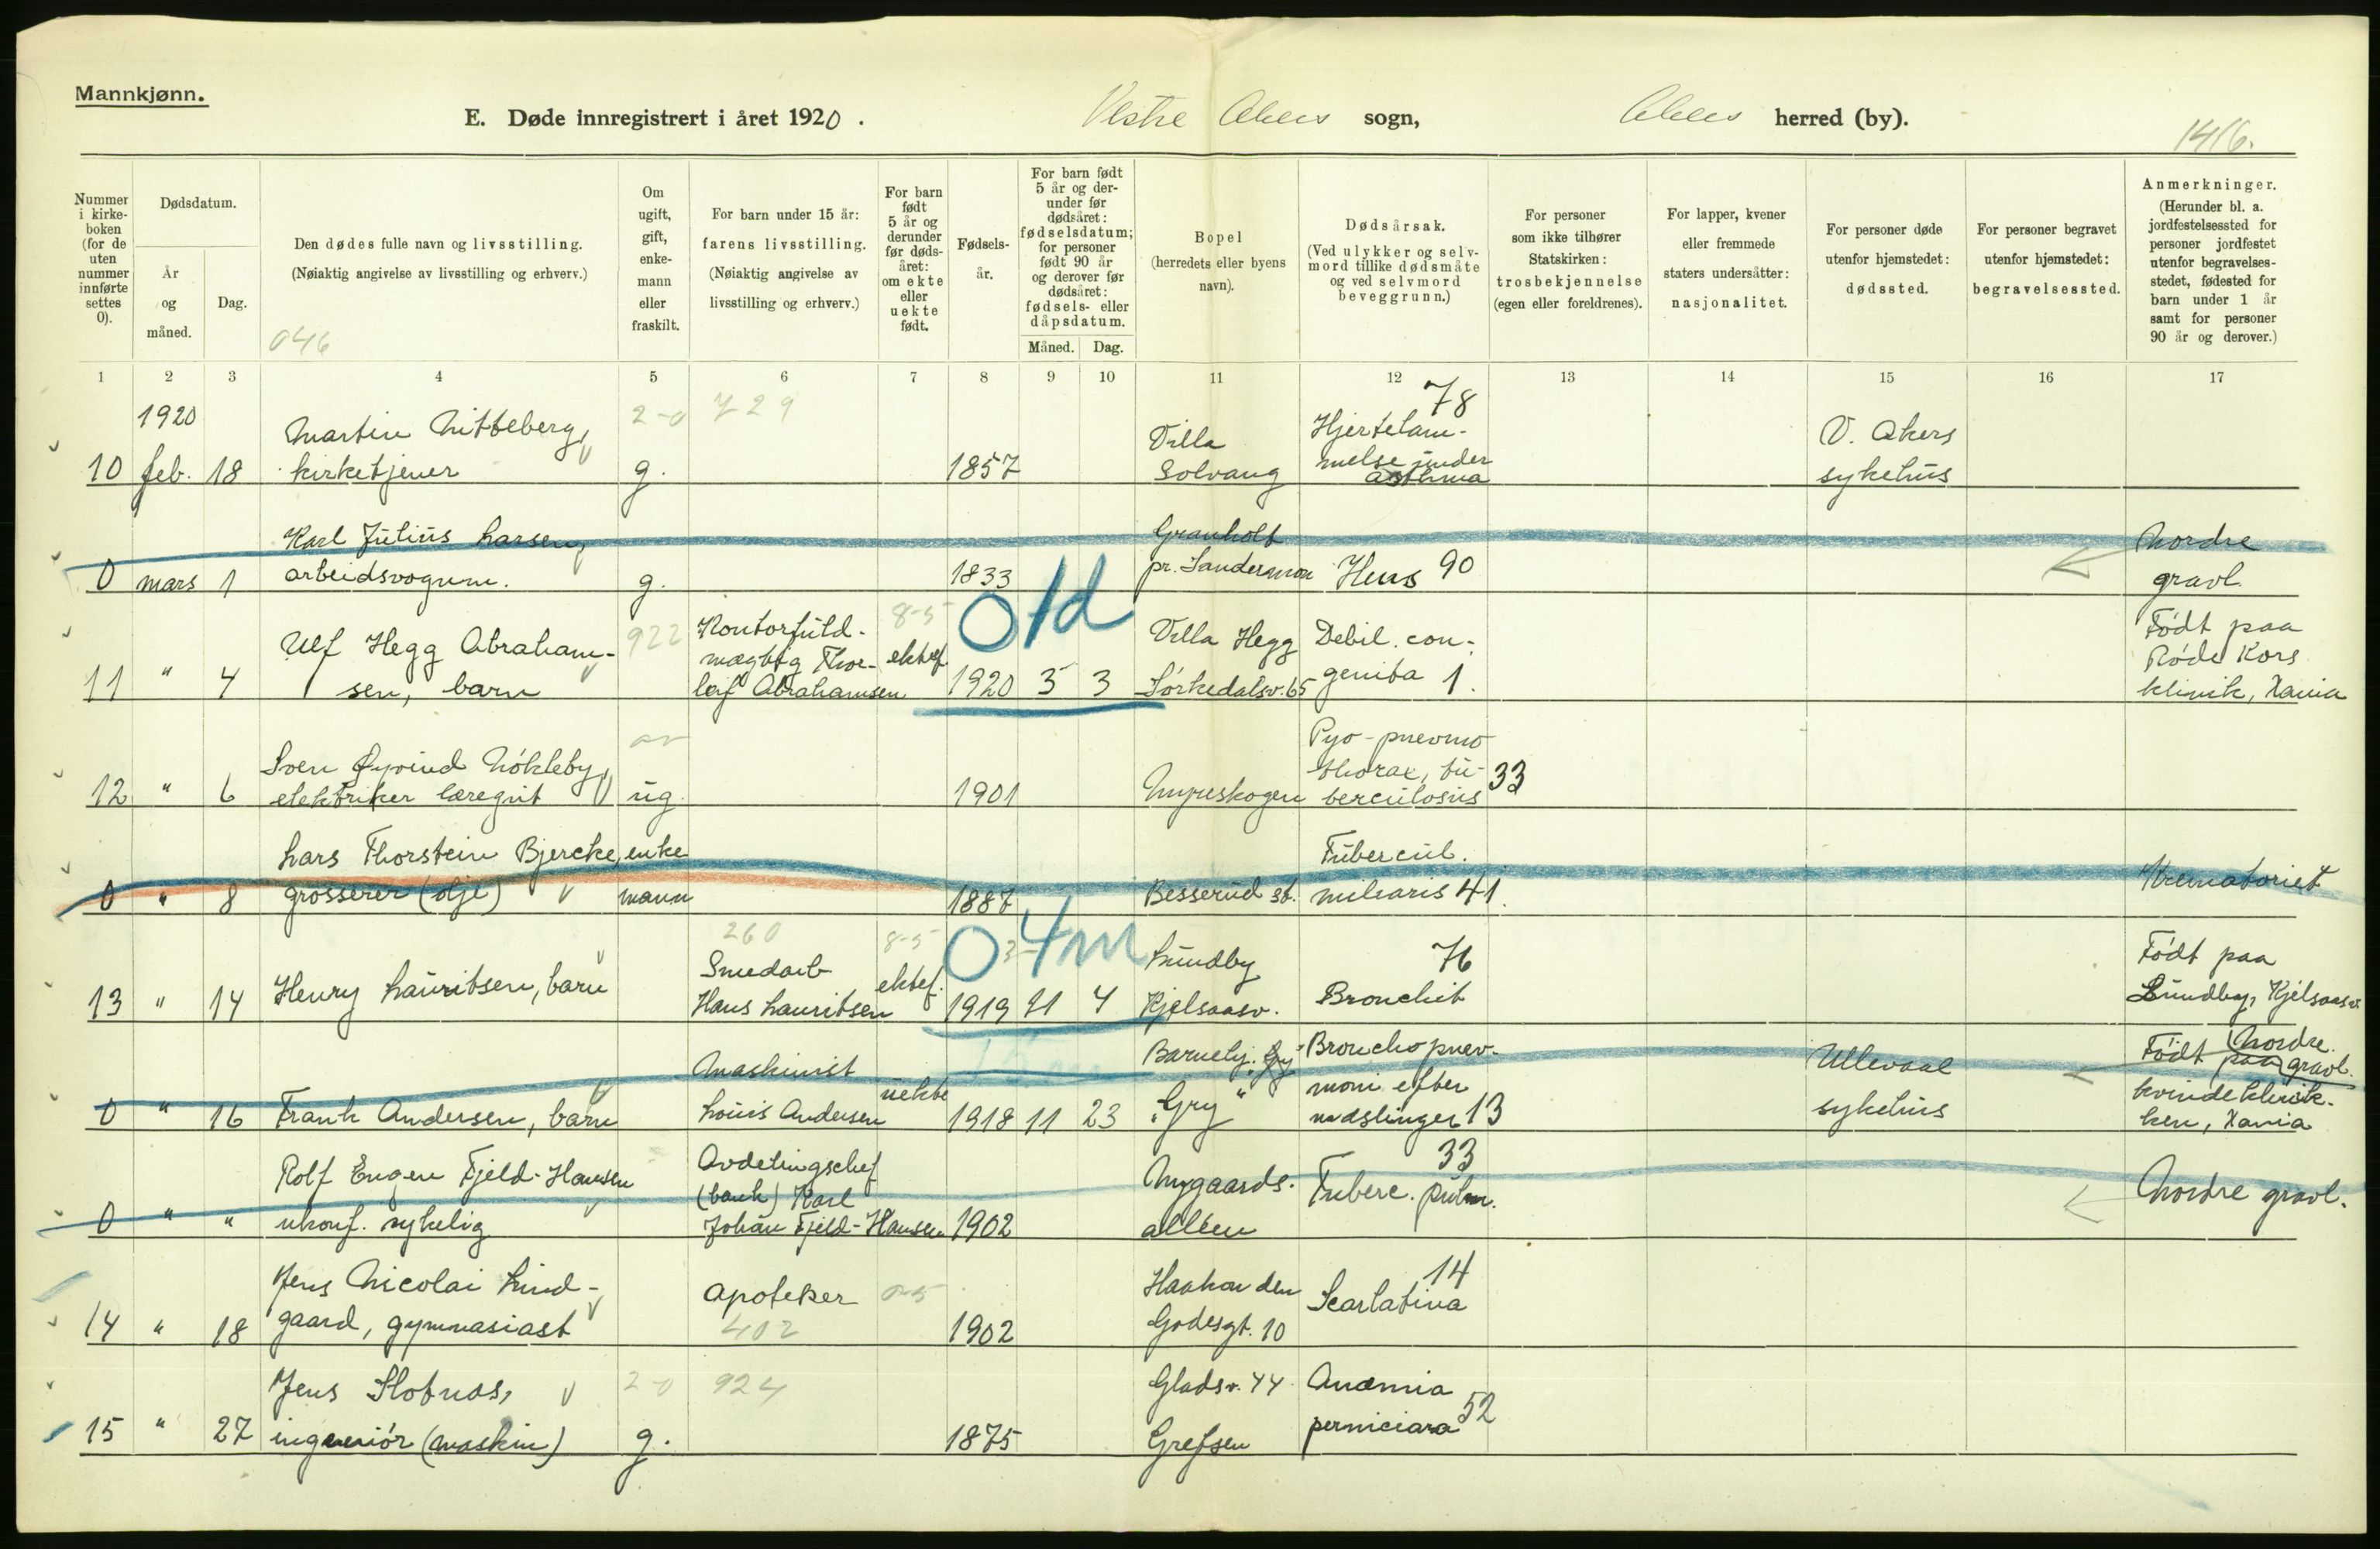 Mannkjønn.
E. Døde innregistrert i året 1920. Vestre Akers sogn, Akers herred (by).
1416.
Nummer i kirkeboken (for de uten nummer innførte settes 0).
Dødsdatum.
År og måned.
Dag.
Den dødes fulle navn og livsstilling.
(Nøiaktig angivelse av livsstilling og erhverv.)
046
Om ugift, gift, enkemann eller fraskilt.
For barn under 15 år: farens livsstilling.
(Nøiaktig angivelse av livsstilling og erhverv.)
For barn født 5 år og derunder før dødsåret: om ekte eller uekte født.
Fødselsår.
For barn født 5 år og derunder før dødsåret: fødselsdatum; for personer født 90 år og derover før dødsåret: fødsels- eller dåpsdatum.
Måned. Dag.
Bopel
(herredets eller byens navn).
Dødsårsak.
(Ved ulykker og selvmord tillike dødsmåte og ved selvmord beveggrunn.)
For personer som ikke tilhører Statskirken: trosbekjennelse
(egen eller foreldrenes).
For lapper, kvener eller fremmede staters undersåtter: nasjonalitet.
For personer døde utenfor hjemstedet: dødssted.
For personer begravet utenfor hjemstedet: begravelsessted.
Anmerkninger.
(Herunder bl. a. jordfestelsessted for personer jordfestet utenfor begravelsesstedet, fødested for barn under 1 år samt for personer 90 år og derover.)
1 2 3 4 5 6 7 8 9 10 11 12 13 14 15 16 17
1920 Martin Nitteberg, 2-0 729 Villa Hjertelam- 78 V. Akers
10 feb. 18 kirketjener g. 1857 Solvang melse under asthma sykehus
Karl Julius Larsen, Granholt Nordre
0 mars 1 arbeidsvognm. g. 1833 pr. Sandermoen Hjus 90 gravl.
Ulf Hegg Abraham- 922 Kontorfuld- 8-5 0 1d Villa Hegg Debil. con- Født paa
mægtig Thor- ektef. Røde Kors
11 " 4 sen, barn leif Abrahamsen 1920 3 3 Sørkedalsv. 65 genita 1. klinik, Xania
Sven Øyvind Nøkleby, Pyo-pneumo
thorax, tu- 33
12 " 6 elektriker læregut ug. 1901 Myreskogen berculosus
Lars Thorstein Bjercke, enke Tubercul. Krematoriet
0 " 8 grosserer (olje) mann 1887 Besserud st. miliaris 41.
260 8-5 0 4m Lundby 76 Født paa
Smedarb.
13 " 14 Henry Lauritsen, barn Hans Lauritsen ektef. 1919 11 4 Kjelsaasv. Bronchit Lundby, Kjelsaasv.
Maskinist Barnehj. Bronchopnev- Ullevaal Født paa Nordre gravl.
moni efter kvindeklinik-
0 " 16 Frank Andersen, barn Louis Andersen uekte 1918 11 23 "Gry" mæslinger 13 sykehus ken, Xania
Rolf Eugen Fjeld-Hansen Avdelingschef Nygaards- 33 Nordre gravl.
(bank) Karl Tuberc. pulm.
0 " " ukonf. sykelig Johan Fjeld-Hansen 1902 alleen
Jens Nicolai Lind- Apoteker 0-5 Haakon den 14
14 " 18 gaard, gymnasiast 402 1902 Godesgt. 10 Scarlatina
Jens Slotnæs, 2-0 924 Gladsv. 44 Anæmia
15 " 27 ingeniør (maskin) g. 1875 Grefsen perniciosa 52